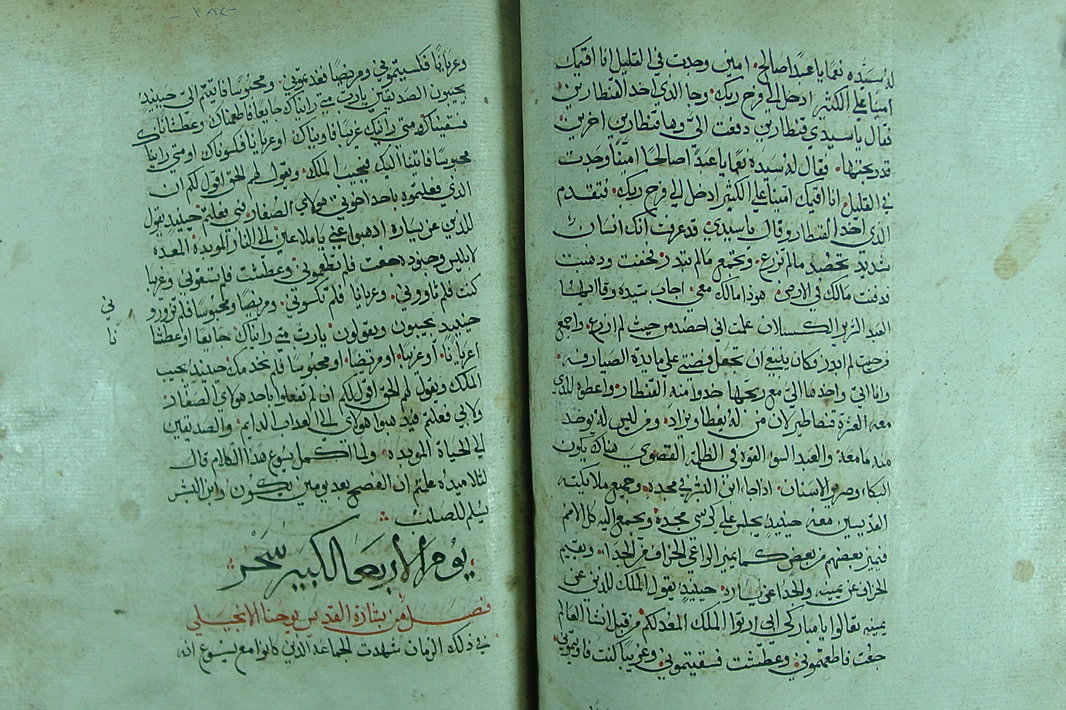 له سيده نعما يا عبدا صالح امين وجدت في القليل انا اقيمك
امينا علي الكثير ادخل الي فرح ربك وجا الدي اخد القنطارين
فقال يا سيدي قنطارين دفعت الي وها قنطارين اخرين
قد ربحتها فقال له سيده نعما يا عبدا صالحا امينا وجدت
في القليل انا اقيمك امينا علي الكثير ادخل الي فرح ربك فتقدم
الذي اخد القنطار وقال يا سيدي قد عرفت انك انسان
شديد تحصد مالم تزرع وتجمع مالم تبدر فخفت ودهبت
ودفنت مالك في الارض هودا مالك معي اجاب سيده وقال ايها
العبد الشرير الكسلان علمت اني احصد من حيث لم ازرع واجمع
من حيث لم ابدر وكان ينبغي ان تجعل فضتي علي مايدة الصيارفه
وانا اتي واخدها الي مع ربحها خدوا منه القنطار واعطوه للدي
معه العشرة قناطير لان من له يعطا ويزاد ومن ليس له يوخد
منه ما معه والعبد السو القوه في الظلمة القصوي هناك يكون
البكاء وصرير الاسنان ادا جا ابن البشر في مجده وجميع ملايكته
القديسين معه حينيد يجلس علي كرسي مجده ويجمع اليه كل الامم
فيميز بعضهم من بعض كما يميز الراعي الخراف من الجدا ويقيم
الخراف عن يمينه والجدا عن يساره حينيد يقول الملك للدين عن
يمينه تعالوا يا مباركي ابي ارثوا الملك المعد لكم من قبل انشا العالم
جعت فاطعمتموني وعطشت فسقيتموني وغريبا كنت فاويتموني
وعريانا فكسيتموني ومريضا فعدتموني ومحبوسا فاتيتم الي حينيد
يجيبون الصديقين يارب متي رايناك جايعا فاطعمناك وعطشانا
فسقيناك متي رايناك غريبا فاويناك او عريانا فكسوناك او متي رايناك
محبوسا فاتينا اليك فيجيب الملك ويقول لهم الحق اقول لكم ان
الذي فعلتموه باحد اخوتي هولاي الصغار فبي فعلتم حينيد يقول
للدين عن يساره ادهبوا عني يا ملاعين الي النار الموبدة المعده
لابليس وجنوده جعت فلم تطعموني وعطشت فلم تسقوني وغريبا
كنت فلم تاووني وعريانا فلم تكسوني ومريضا ومحبوسا فلم تزورو
ني
حينيد يجيبون ويقولون يارب متي رايناك جايعا او عطشا
نا
او عريانا او غريبا او مريضا او محبوسا فلم نخدمك حينيد يجيب
الملك ويقول لهم الحق اقول لكم ان لم تفعلوا باحد هولاي الصغار
ولا بي فعلتم فيدهبوا هولاي الي العداب الدايم والصديقين
الي الحياة الموبده ولما اكمل يسوع هدا الكلام قال
لتلاميده علمتم ان الفصح بعد يومين يكون وابن البشر
يسلم للصلب
يوم الاربعا الكبير سحر
فصل من بشارة القديس يوحنا الانجيلي
في ذلك الزمان شهدت الجماعة الذين كانوا مع يسوع انه